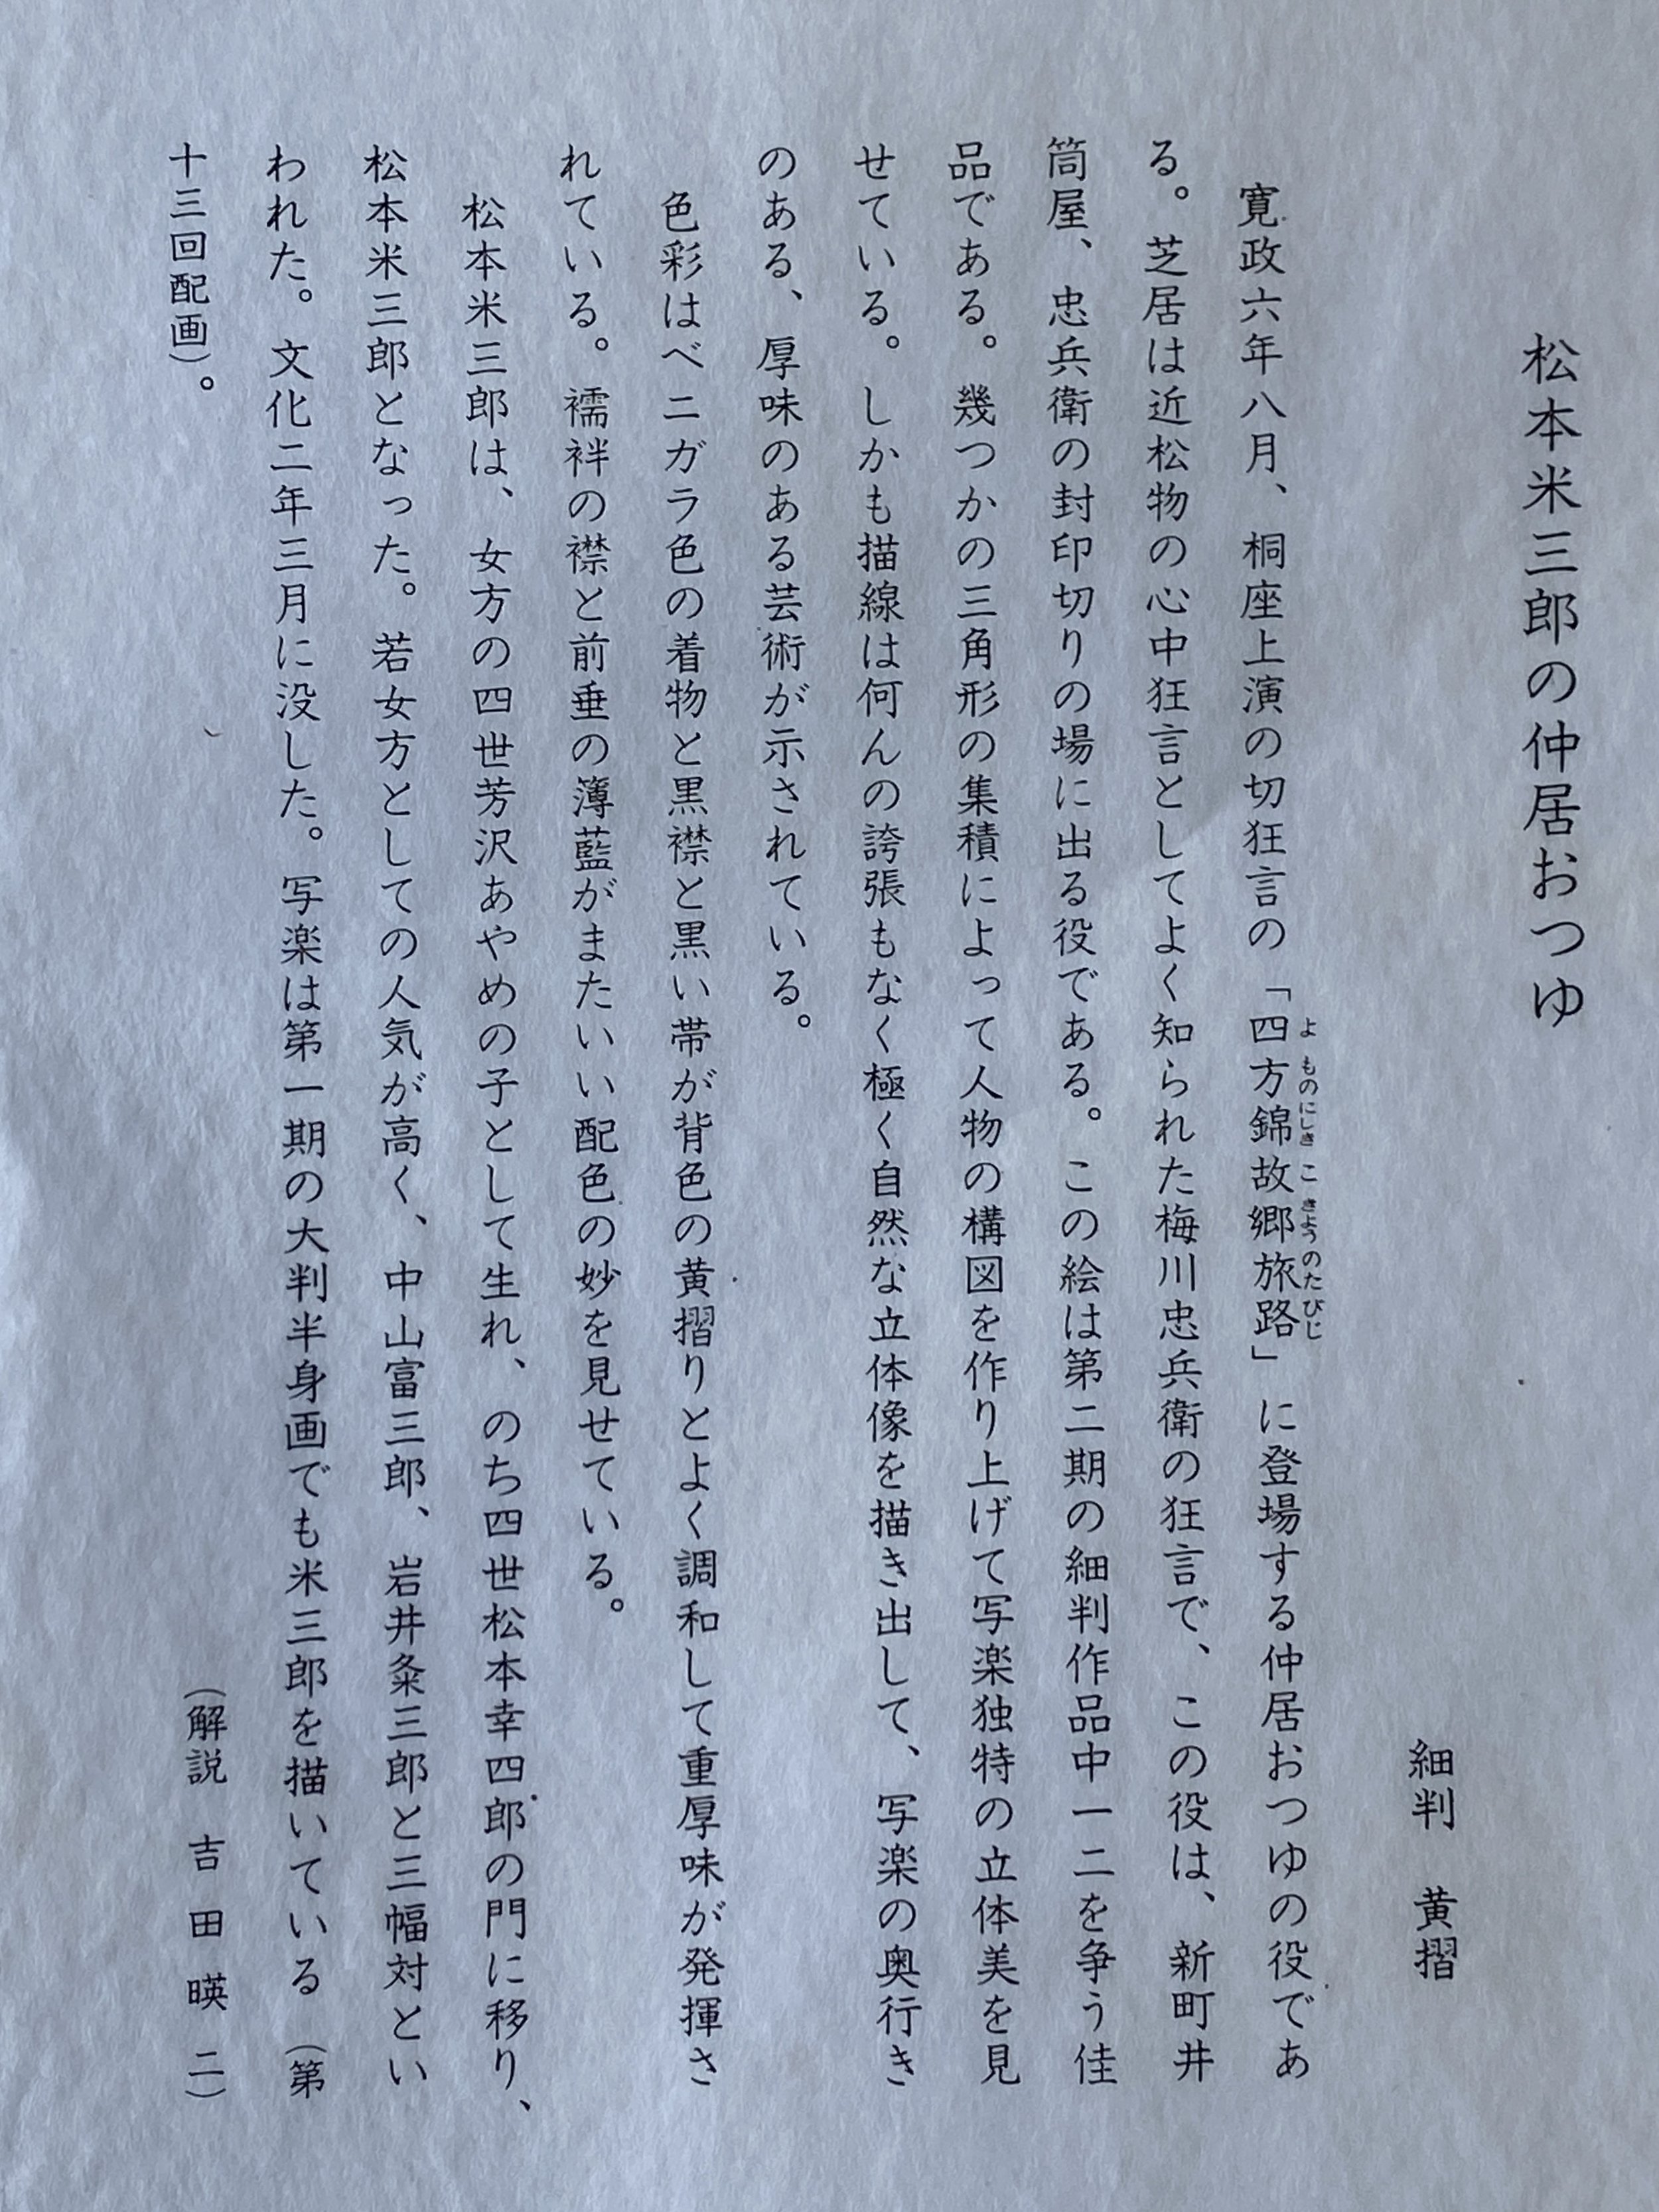 松本米三郎の仲居おつゆ
細判　黄摺
寛政六年八月、桐座上演の切狂言の「四方錦故郷旅路」に登場する仲居おつゆの役であ
よものにしきこきようのたびじ
る。芝居は近松物の心中狂言としてよく知られた梅川忠兵衛の狂言で、この役は、新町井
筒屋、忠兵衛の封印切りの場に出る役である。この絵は第二期の細判作品中一二を争う佳
品である。幾つかの三角形の集積によって人物の構図を作り上げて写楽独特の立体美を見
せている。しかも描線は何んの誇張もなく極く自然な立体像を描き出して、写楽の奥行き
のある、厚味のある芸術が示されている。
色彩はベニガラ色の着物と黒襟と黒い帯が背色の黄摺りとよく調和して重厚味が発揮さ
れている。襦袢の襟と前垂の簿藍がまたいい配色の妙を見せている。
松本米三郎は、女方の四世芳沢あやめの子として生れ、のち四世松本幸四郎の門に移り、
松本米三郎となった。若女方としての人気が高く、中山富三郎、岩井粂三郎と三幅対とい
われた。文化二年三月に没した。写楽は第一期の大判半身画でも米三郎を描いている（第
十三回配画）。
（解説　吉田暎二）